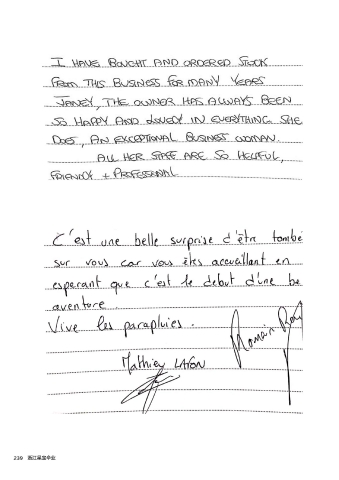 I HAVE BOUGHT AND ORDERED STOCK
FROM THIS BUSINESS FOR MANY YEARS
JANEY, THE OWNER HAS ALWAYS BEEN
SO HAPPY AND LOVELY IN EVERYTHING SHE
DOES, AN EXCEPTIONAL BUSINESS WOMAN.
ALL HER STAFF ARE SO HELPFUL,
FRIENDLY + PROFESSIONAL
C'est une belle surprise d'être tombé
sur vous car vous êtes accueillant en
esperant que c'est le debut d'une be
aventure.
Vive les parapluies.
Romain
Mathieu LAFON
239 浙江星宝伞业